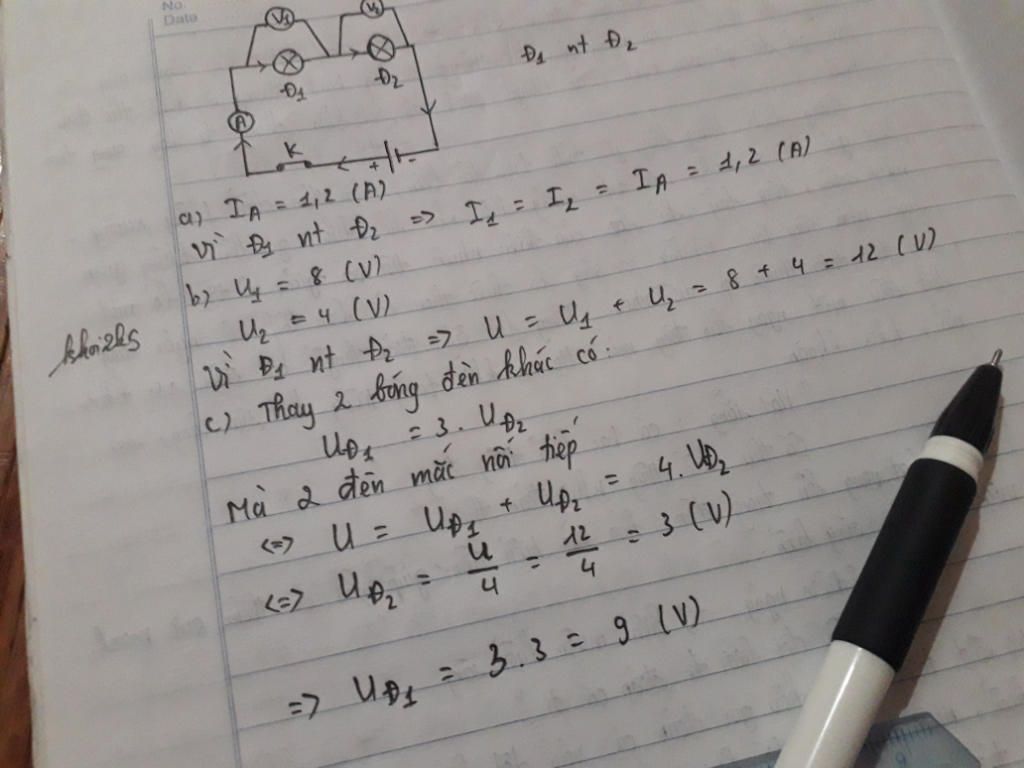 No.
Data
V1
V1
Đ1
Đ2
Đ1 nt Đ2
A
K
+ -
a) IA = 1,2 (A)
Vì Đ1 nt Đ2 => I1 = I2 = IA = 1,2 (A)
b) U1 = 8 (V)
U2 = 4 (V)
Vì Đ1 nt Đ2 => U = U1 + U2 = 8 + 4 = 12 (V)
khoi2k5
c) Thay 2 bóng đèn khác có:
UĐ1 = 3. UĐ2
Mà 2 đèn mắc nối tiếp
<=> U = UĐ1 + UĐ2 = 4. UĐ2
<=> UĐ2 = U/4 = 12/4 = 3 (V)
=> UĐ1 = 3.3 = 9 (V)